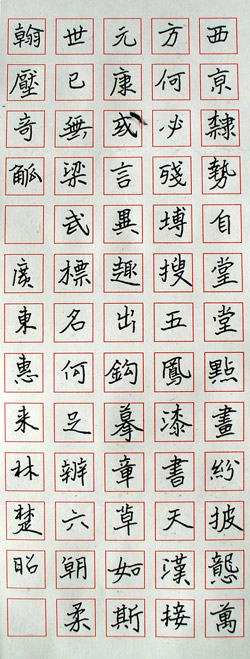 西京隸勢自堂堂點畫紛披態萬
方何必殘塼搜五鳳漆書天漢接
元康或言異趣出鈎摹章草如斯
世已無梁武標名何足辨六朝柔
翰壓奇觚 廣東惠来林楚昭